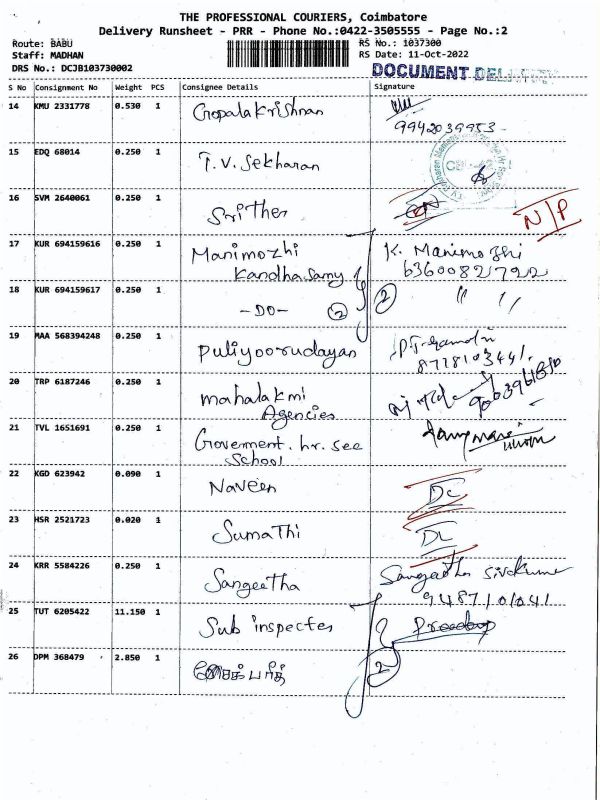 THE PROFESSIONAL COURIERS, Coimbatore
Delivery Runsheet - PRR - Phone No.:0422-3505555 - Page No.:2
Route: BABU
Staff: MADHAN
DRS No.: DCJB103730002
RS No.: 1037300
RS Date: 11-Oct-2022
DOCUMENT
S No Consignment No Weight PCS Consignee Details Signature
14 KMU 2331778 0.530 1 Gopalakrishnan
9942039953
15 EDQ 68014 0.250 1 T.V. Sekharan
16 SVM 2640061 0.250 1 Srither N/P
17 KUR 694159616 0.250 1 Manimozhi K. Manimozhi
Kandhasamy 6360082722
18 KUR 694159617 0.250 1 -DO- 2 2 " "
19 MAA 568394248 0.250 1 Puliyoorudayan
8778103441
20 TRP 6187246 0.250 1 mahalakmi
Agencies
21 TVL 1651691 0.250 1 Goverment. hr. see
School
22 KGD 623942 0.090 1 Naveen DC
23 HSR 2521723 0.020 1 Sumathi DL
24 KRR 5584226 0.250 1 Sangeetha
9487101041
25 TUT 6205422 11.150 1 Sub inspecter
26 DPM 368479 2.850 1 2